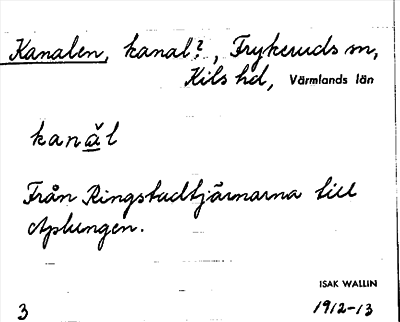 Kanalen, kanal?, Frykeruds sn,
Kils hd, Värmlands län
kanăl
Från Ringstadtjärnarna till
Aplungen.
ISAK WALLIN
3 1912-13